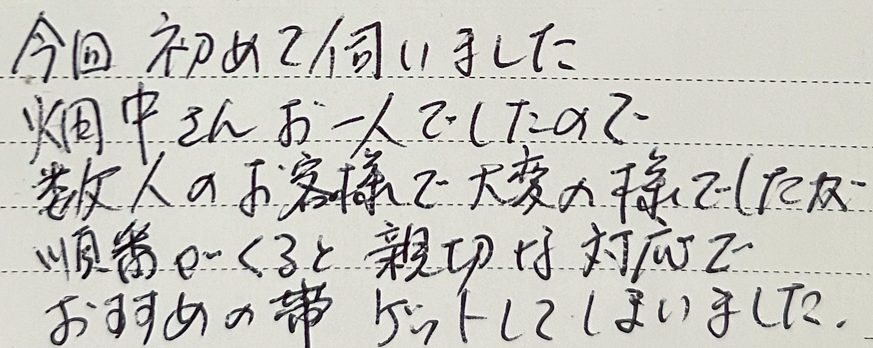 今回 初めて伺いました
畑中さんお一人でしたので
数人のお客様で大変の様でしたが
順番がくると親切な対応で
おすすめの帯 ゲットしてしまいました.